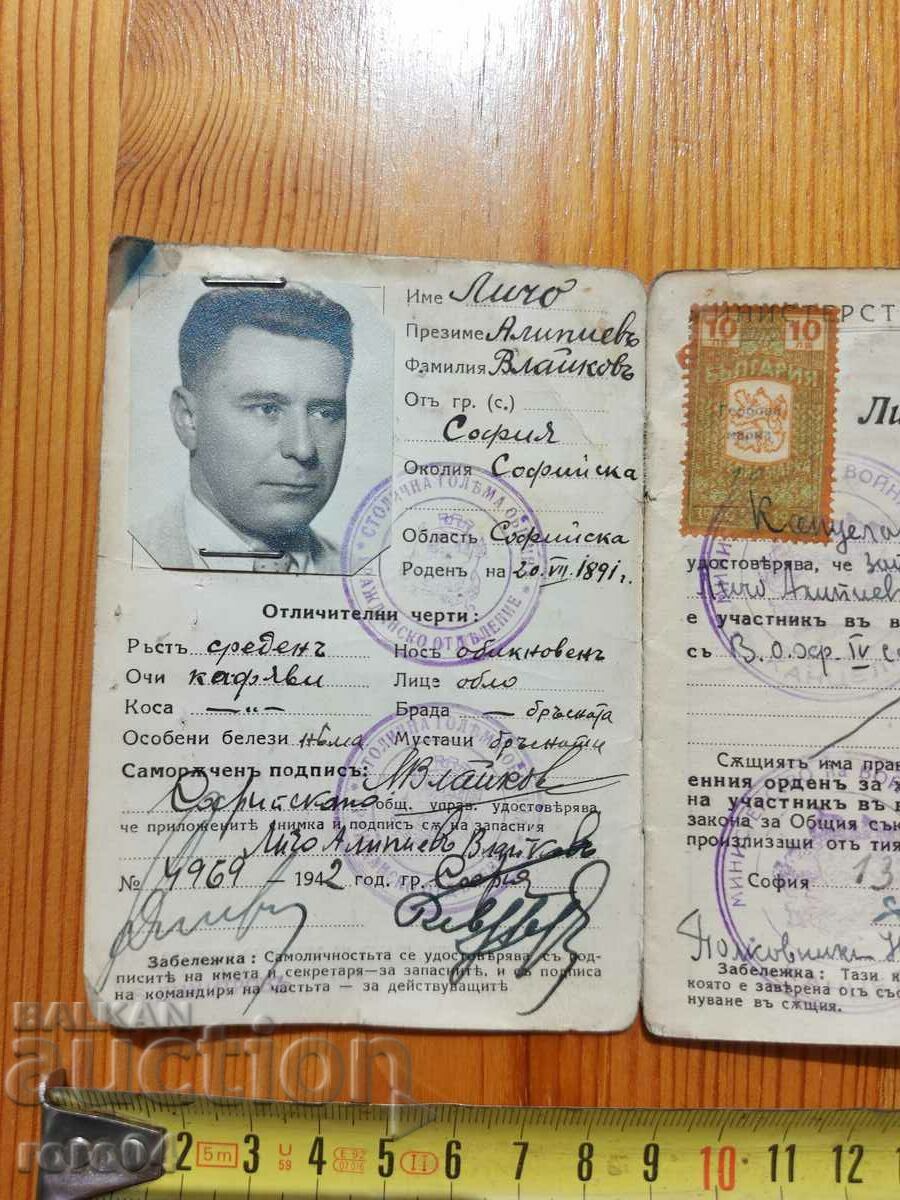 Име Личо
Презиме Алипиевъ
Фамилия Влайковъ
Отъ гр. (с.)
София
Околия Софийска
Область Софийска
Роденъ на 20. VII. 1891 г.
Отличителни черти:
Ръстъ среденъ Носъ обикновенъ
Очи кафяви Лице обло
Коса —„— Брада — бръсната
Особени белези нѣма Мустаци бръснати
Саморѫченъ подпись: Влайков
Софийската общ. управ. удостовѣрява,
че приложенитѣ снимка и подпис сѫ на запасния
Личо Алипиевъ Влайковъ
№ 4969 — 1942 год. гр. София
Забележка: Самоличностьта се удостовѣрява съ под-
писитѣ на кмета и секретаря—за запаснитѣ, и съ подписа
на командира на частьта — за действуващитѣ
СТОЛИЧНА ГОЛѢМА ОБЩИНА
ОТДѢЛЕНИЕ
СТОЛИЧНА ГОЛѢМА
МИНИСТЕРСТ
10 10
ЛВ ЛВ
БЪЛГАРИЯ
Гербова
марка
Ли
ВОЙН
Канцела
удостовѣрява, че
Личо Алипиев
е участникъ въ в
съ В. О. хр. IV с
Сѫщиятъ има прав
енния орденъ за х
на участникъ въ в
закона за Общия сък
произлизащи отъ тия
София 13
Полковникъ
Забележка: Тази к
която е заверена отъ със
нуване въ сѫщия.
BALKAN
auction
2 5m 3 U 59 4 E 92 5 II 6 7 8 9 10 11 12